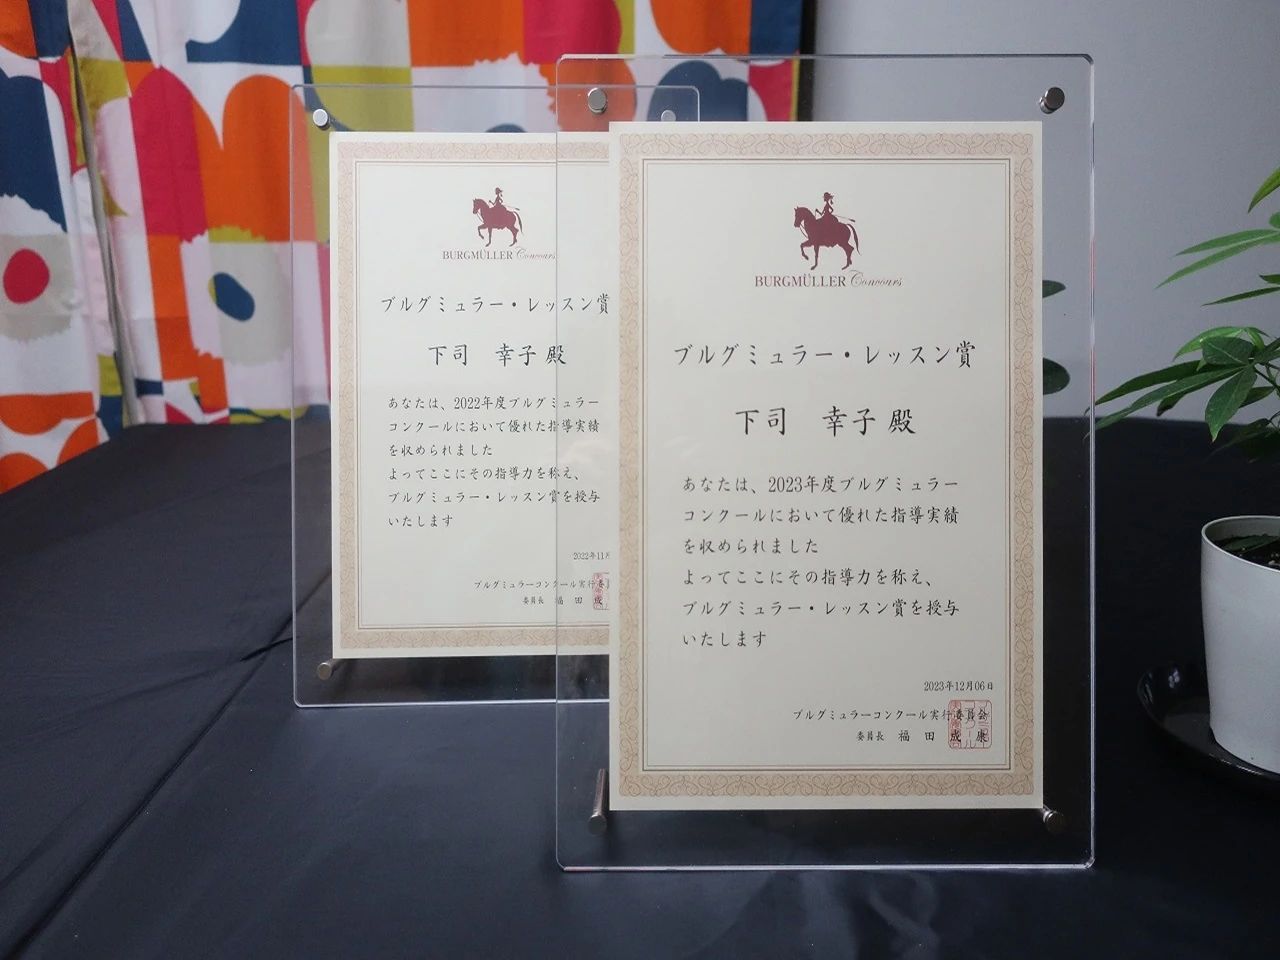 BURGMÜLLER Concours
ブルグミュラー・レッスン賞
下司　幸子 殿
あなたは、2022年度ブルグミュラー
コンクールにおいて優れた指導実績
を収められました
よってここにその指導力を称え、
ブルグミュラー・レッスン賞を授与
いたします
2022年11月
ブルグミュラーコンクール実行委
委員長　福　田　成
BURGMÜLLER Concours
ブルグミュラー・レッスン賞
下司　幸子 殿
あなたは、2023年度ブルグミュラー
コンクールにおいて優れた指導実績
を収められました
よってここにその指導力を称え、
ブルグミュラー・レッスン賞を授与
いたします
2023年12月06日
ブルグミュラーコンクール実行委員会
委員長　福　田　成　康